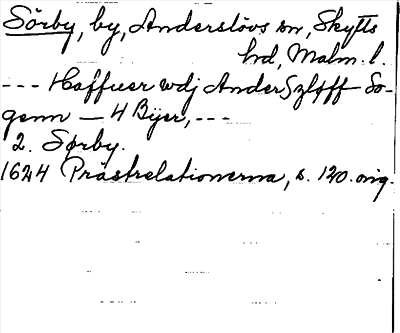 Sörby, by, Anderslövs sn, Skytts
hd, Malm. l.
--- Haffuer wdj Anderszløff So-
genn — 4 Byer, ---
2. Sørby.
1624 Prästrelationerna, s. 120. orig.